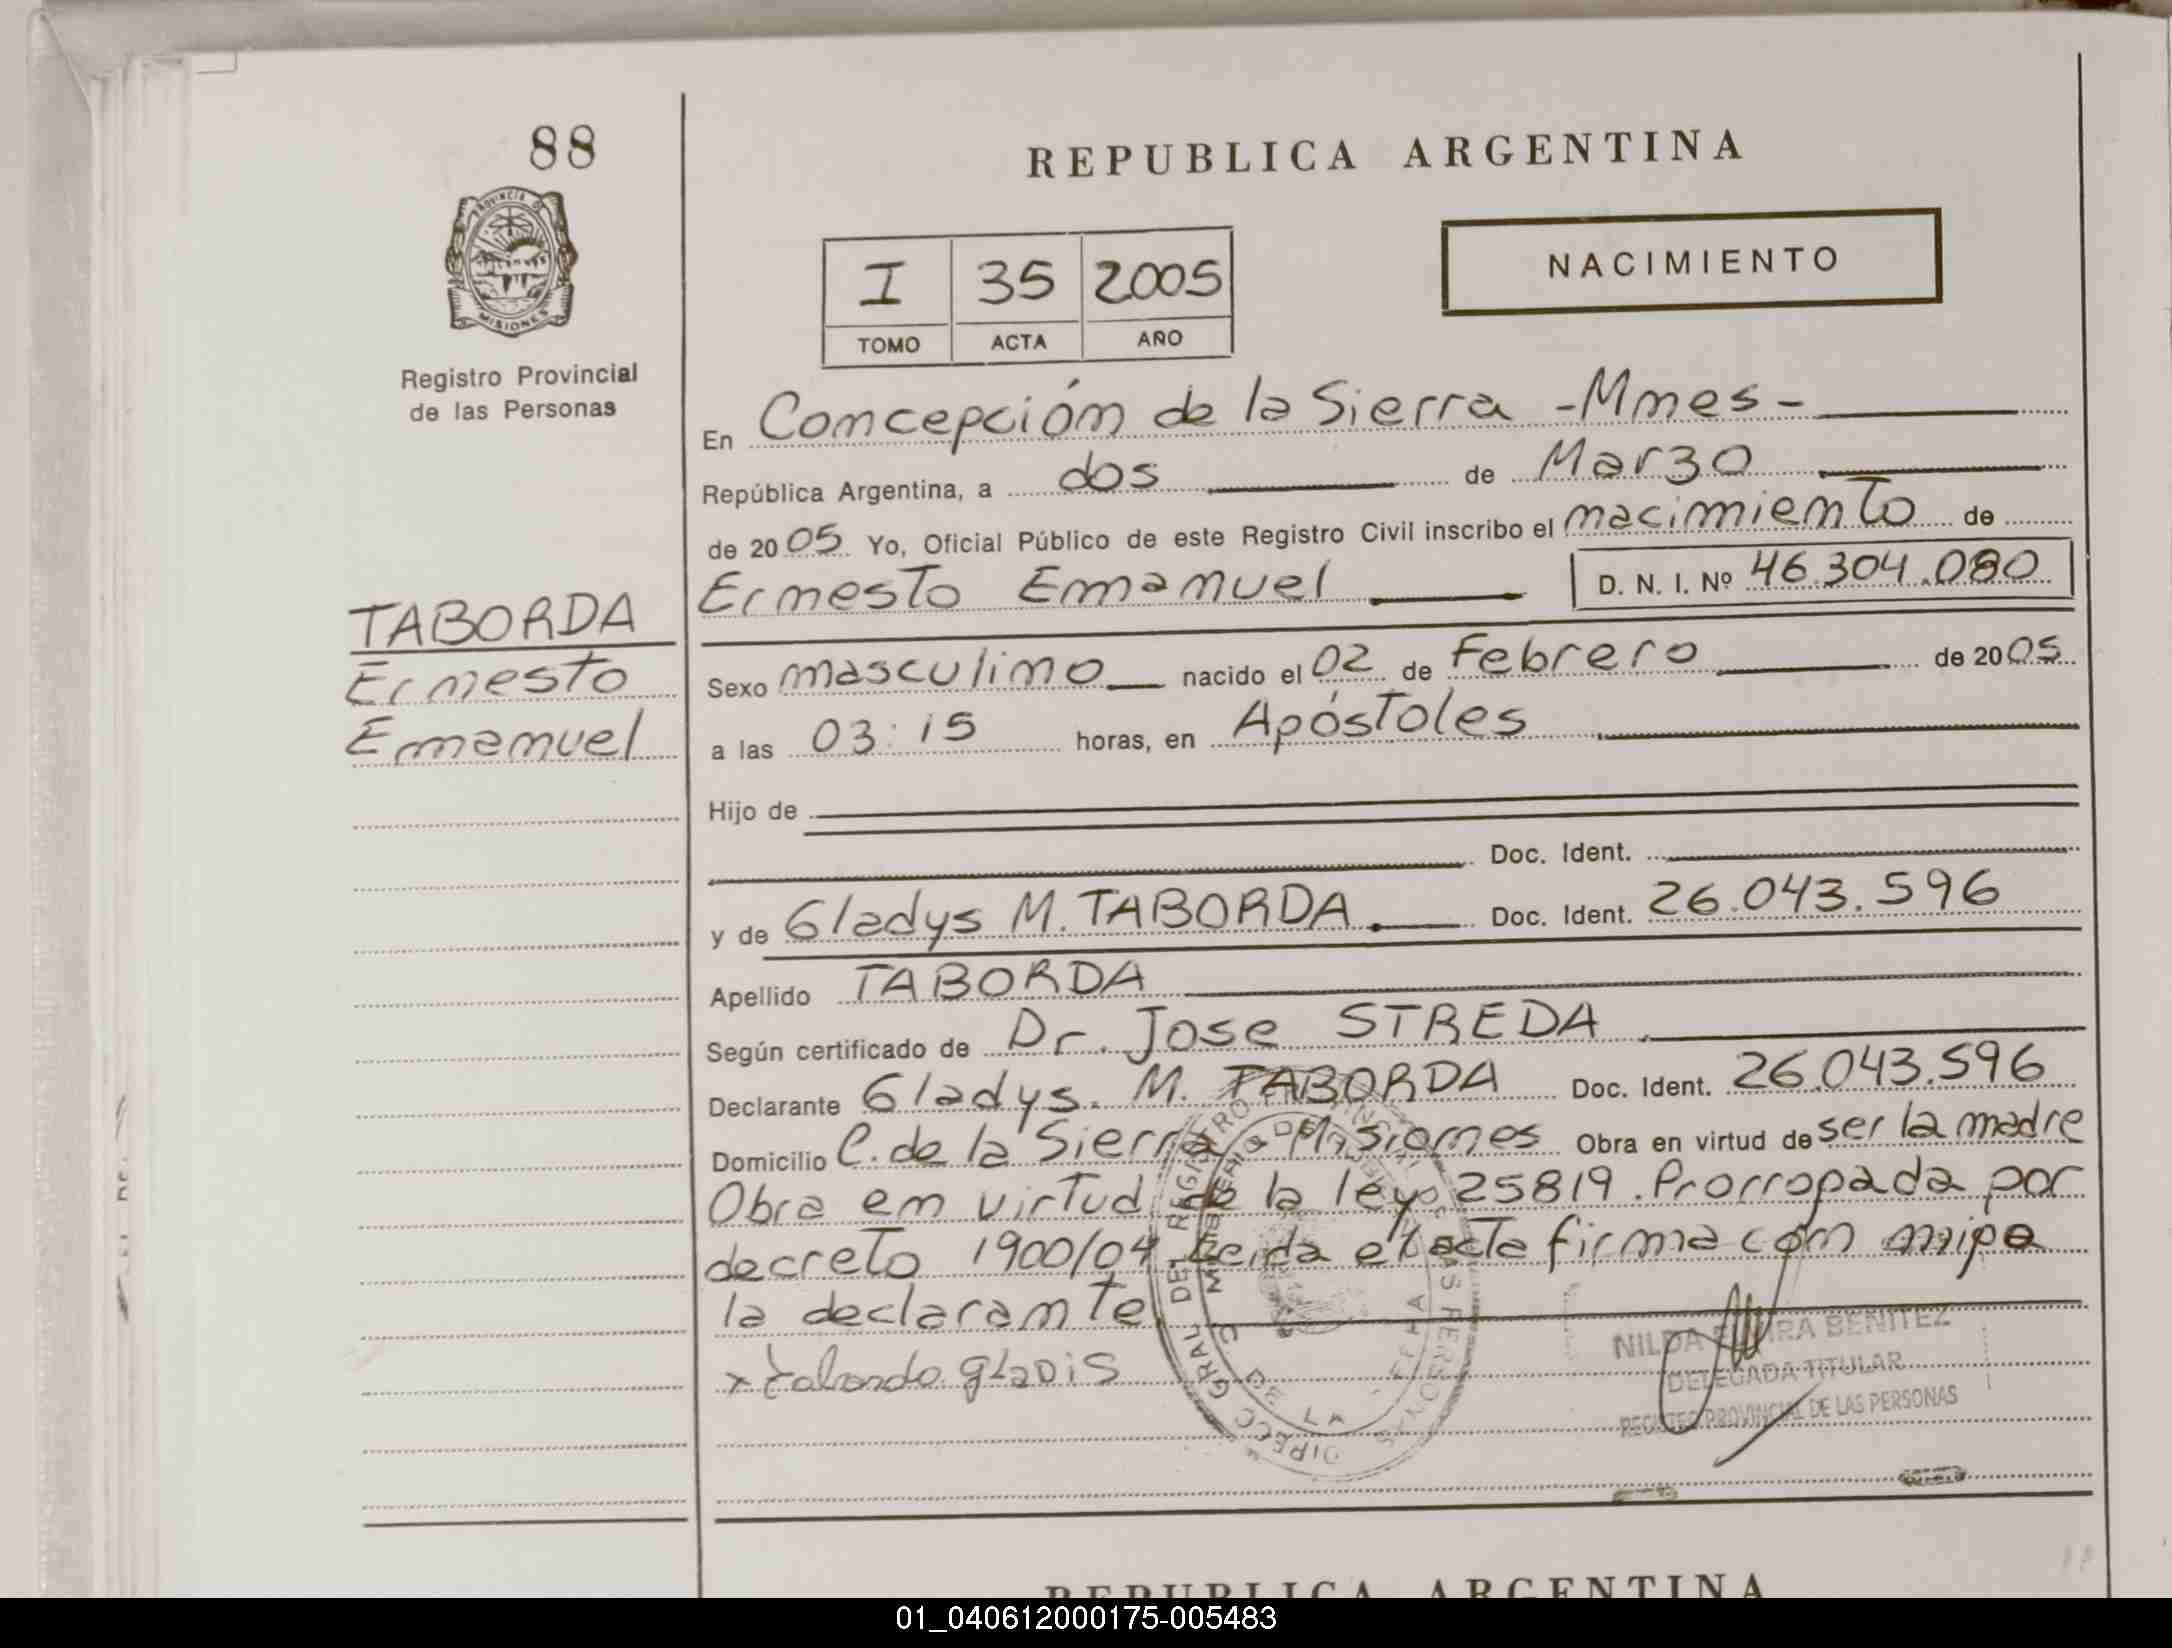 88
REPUBLICA ARGENTINA
PROVINCIA DE
MISIONES
Registro Provincial
de las Personas
I 35 2005
TOMO ACTA AÑO
NACIMIENTO
En Concepción de la Sierra -Mnes-
República Argentina, a dos de Marzo
de 2005 Yo, Oficial Público de este Registro Civil inscribo el nacimiento de
Ernesto Emanuel D. N. I. Nº 46.304.080
TABORDA
Ernesto
Emanuel
Sexo masculino nacido el 02 de Febrero de 2005
a las 03:15 horas, en Apóstoles
Hijo de
Doc. Ident.
y de Gladys M. TABORDA. Doc. Ident. 26.043.596
Apellido TABORDA
Según certificado de Dr. Jose STREDA
Declarante Gladys. M. TABORDA Doc. Ident. 26.043.596
Domicilio C. de la Sierra - Misiones Obra en virtud de ser la madre
Obra en virtud de la ley 25819. Prorrogada por
decreto 1900/04 Leida el acta firma con migo
la declarante.
x taborda gladis
NILDA BENITEZ
DELEGADA TITULAR
REGISTRO PROVINCIAL DE LAS PERSONAS
REPUBLICA ARGENTINA
01_040612000175-005483